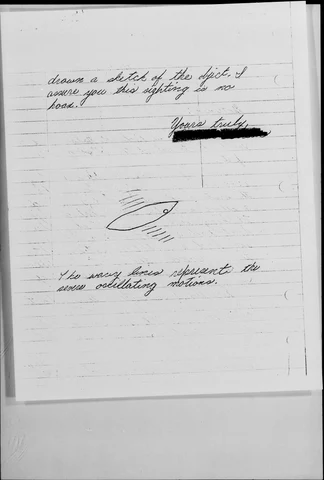 drawn a sketch of the object. I
assure you this sighting is no
hoax.
Yours truly,
The wavy lines represent the
sense oscillating motions.